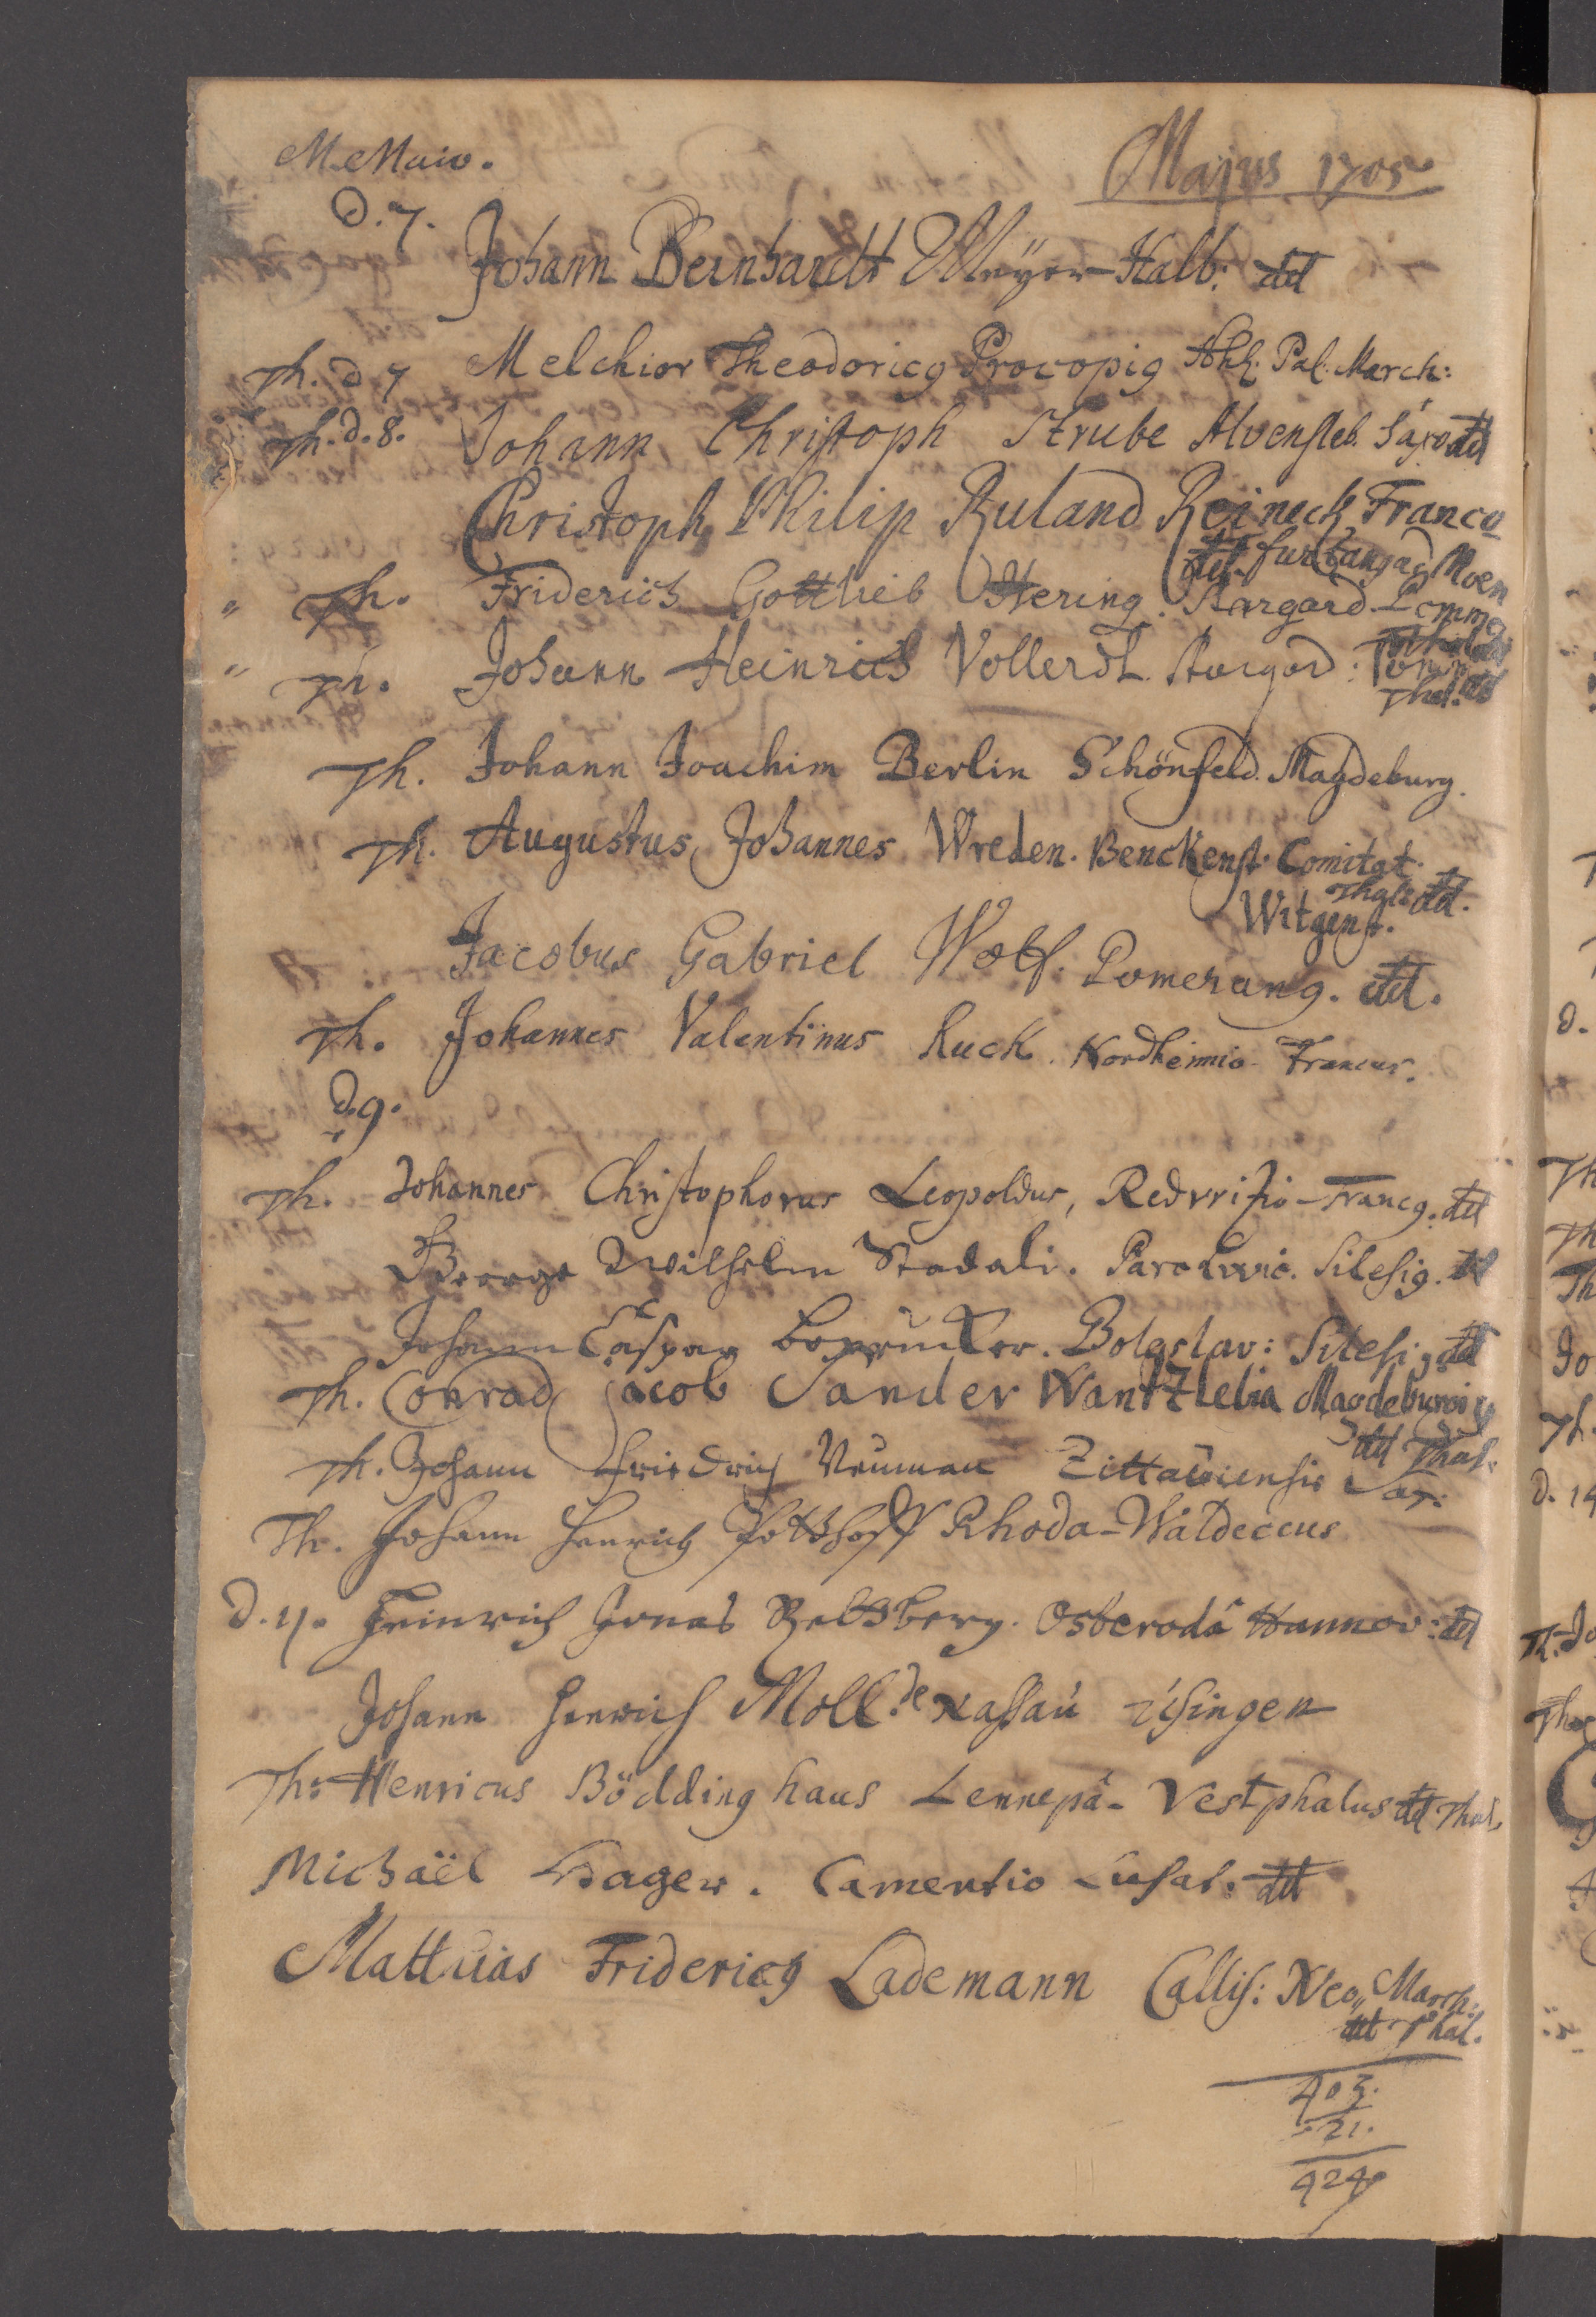 M. Maio.
Majus 1705
d. 7.
Johann Bernhardt Meyer-Halb: dd
Th. d 7 Melchior Theodoricg Procopig Pal. March:
Th. d. 8. Johann Christoph Strube Alvensleb. Saxo dd
Christoph Philip Ruland Reineck Franco
dd. furtanjag Moen
" Th. Friderich Gottlieb Hering. Stargard-Pomme
" Th. Johann Heinrich Vollerdt. Stargard:
Thal. dd
Th. Johann Joachim Berlin Schönfeld. Magdeburg.
Th. Augustus Johannes Wreden. Benckenst. Comitat.
Witgenst.
dd.
Jacobus Gabriel Wolf. Pomerang. dd.
Th. Johannes Valentinus Ruck. Nordheimio-Francus.
d. 9.
Th. Johannes Christophorus Leopoldus, Redvvizio-Francg. dd
George Wilhelm Stadali. Parchwic. Silesig. dd
Johann Caspar Bolesslav: Silesig dd
Th. Conrad Jacob Sander Wantzlebia Magdeburgig
dd Thal.
Th. Johann Friedrich Neuman Zittaviensis Sax:
Th. Johann Henrich Potthoff Rhoda-Waldeccus
d. 11. Heinrich Jonas Osterodâ Hannov: dd
Johann Henrich Moll. de Nassau Usingen
Th: Henricus Bödding haus Lennepâ- Vestphalus dd Thal.
Michaël Hager. Camentio Lusat: dd
Matthias Fridericg Lademann Callis: Neo,, March:
dd Thal.
403.
21.
424